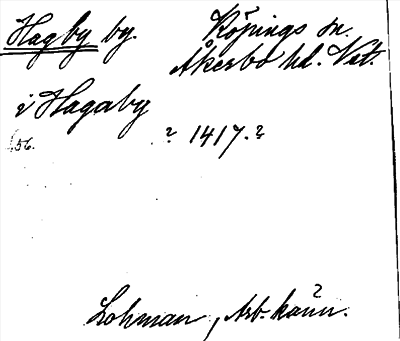 Hagby by. Köpings sn.
Åkerbo hd. Vst.
i Hagaby
56. ? 1417.?
Lohman, Arb.